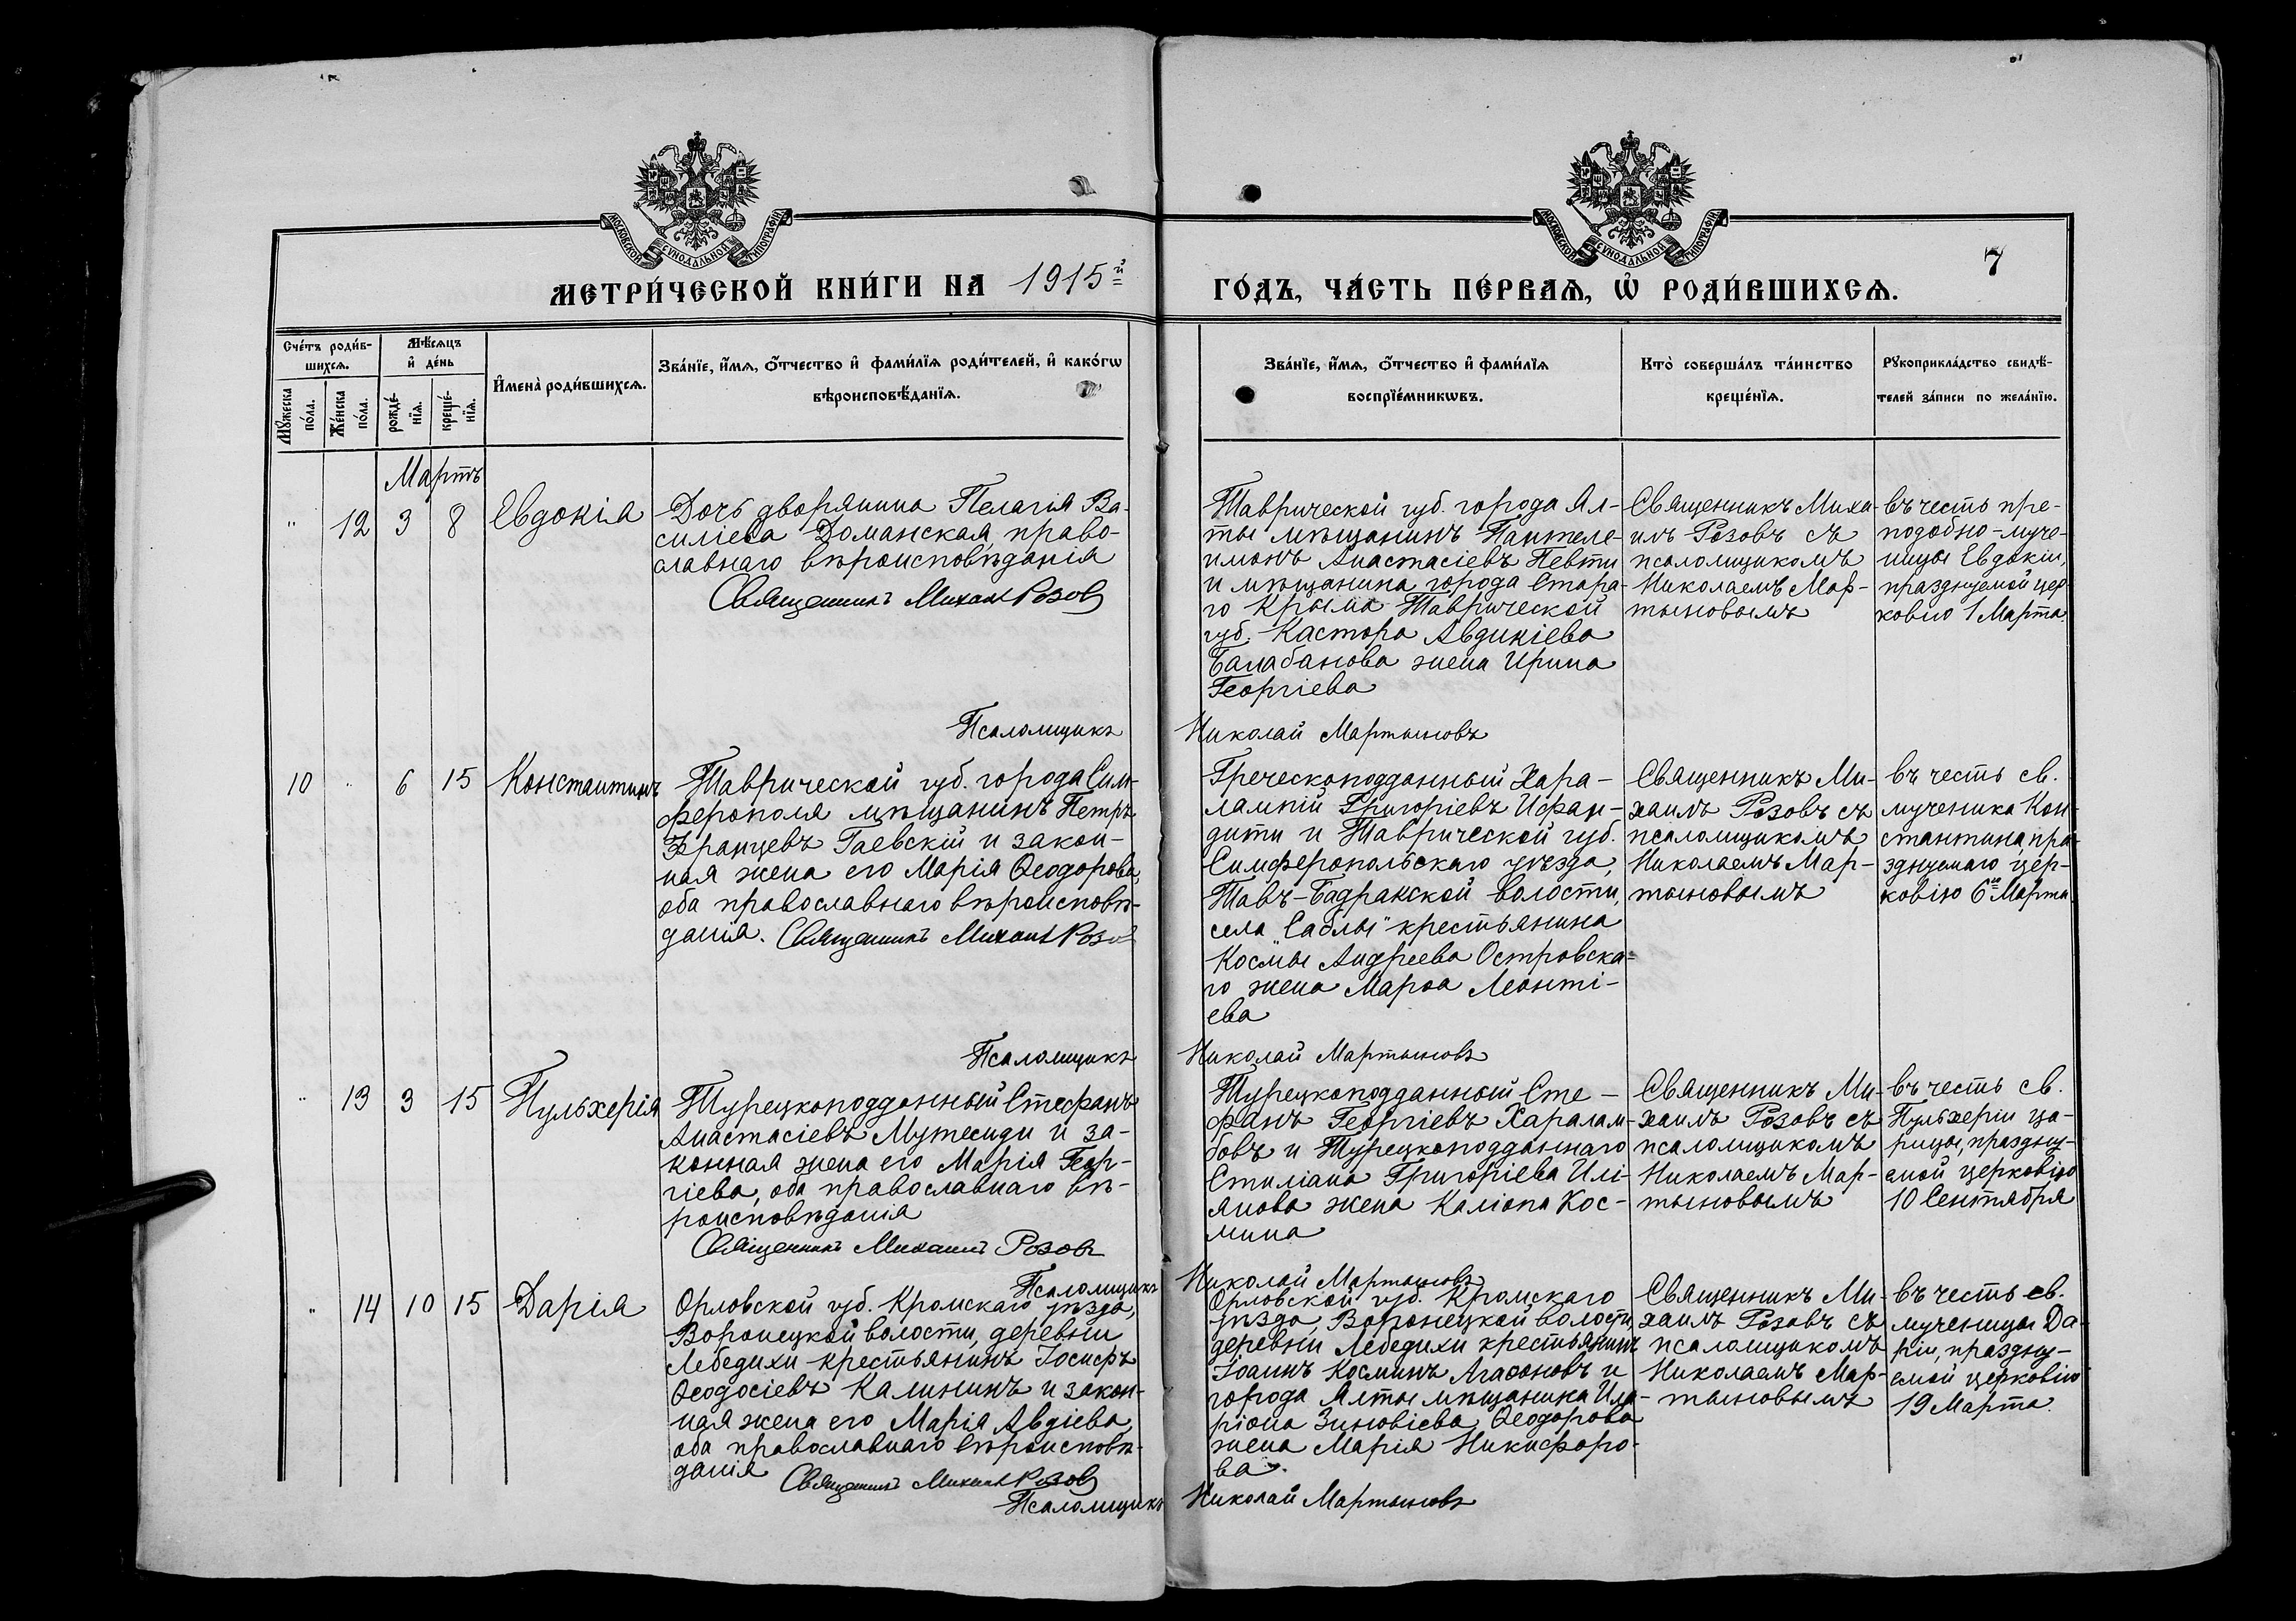 7
МОСКОВСКОЙ СѴНОДАЛЬНОЙ ТИПОГРАФІИ
МОСКОВСКОЙ СѴНОДАЛЬНОЙ ТИПОГРАФІИ
МЕТРИ́ЧЕСКОЙ КНИ́ГИ НА 1915й
ГО́ДЪ, ЧА́СТЬ ПЕ́РВАѦ, Ѽ РОДИ́ВШИХСѦ.
Сче́тъ роди́в-
шихсѧ.
Мꙋ́жеска
по́ла.
Же́нска
по́ла.
Мѣ́сѧцъ
и҆ де́нь
рожде́-
нїѧ.
креще́-
нїѧ.
И҆мена̀ роди́вшихсѧ.
Зва́нїе, и҆́мѧ, ѻ҆́тчество и҆ фами́лїѧ роди́телей, и҆ како́гѡ
вѣроисповѣ́данїѧ.
Зва́нїе, и҆́мѧ, ѻ҆́тчество и҆ фами́лїѧ
воспрїе́мникѡвъ.
Кто̀ соверша́лъ та́инство
креще́нїѧ.
Рꙋкоприкла́дство свидѣ́-
телей за́писи по жела́нїю.
Мартъ
" 12 3 8 Евдокія
Дочь дворянина Пелагія Ва-
силіева Доманская, право-
славнаго вѣроисповѣданія
Священникъ Михаил Розовъ
Таврической губ. города Ял-
ты мѣщанинъ Пантеле-
имонъ Анастасіевъ Певти
и мѣщанина города Стара-
го Крыма Таврической
губ. Кастора Авдикіева
Балабанова жена Ирина
Георгіева
Священникъ Миха-
илъ Розовъ съ
псаломщикомъ
Николаемъ Мар-
тыновымъ
въ честь пре-
подобно-муче-
ницы Евдокіи,
празднуемой цер
ковію 1 Марта.
Псаломщикъ Николай Мартыновъ
10 " 6 15 Константинъ
Таврической губ. города Сим-
ферополя мѣщанинъ Петръ
Францевъ Гаевскій и закон-
ная жена его Марія Ѳеодорова,
оба православнаго вѣроисповѣ-
данія. Священникъ Михаил Розов
Греческоподданный Хара-
лампій Григоріевъ Исфан-
дити и Таврической губ.
Симферопольскаго уѣзда,
Тавъ-Бадракской волости,
села "Саблы" крестьянина
Космы Андреева Островска-
го жена Марѳа Леонті-
ева
Священникъ Ми-
хаилъ Розовъ съ
псаломщикомъ
Николаемъ Мар-
тыновымъ
въ честь св.
мученика Кон-
стантина, пра-
зднуемаго цер-
ковію 6го Марта
Псаломщикъ Николай Мартыновъ
" 13 3 15 Пульхерія
Турецкоподданный Стефанъ
Анастасіевъ Мутесиди и за-
конная жена его Марія Геор-
гіева, оба православнаго вѣ-
роисповѣданія
Священникъ Михаилъ Розовъ
Турецкоподданный Сте-
фанъ Георгіевъ Харалам-
бовъ и Турецкоподданнаго
Стиліана Григоріева Илі-
янова жена Каліопа Кос-
мина
Священникъ Ми-
хаилъ Розовъ съ
псаломщикомъ
Николаемъ Мар-
тыновымъ
въ честь св.
Пульхеріи ца-
рицы, праздну-
емой церковію
10 Сентября
Псаломщикъ Николай Мартыновъ
" 14 10 15 Дарія
Орловской губ. Кромскаго уѣзда,
Воронецкой волости, деревни
Лебедихи крестьянинъ Іосифъ
Ѳеодосіевъ Калининъ и закон-
ная жена его Марія Авдіева,
оба православнаго вѣроисповѣ-
данія Священникъ Михаил Розовъ
Орловской губ. Кромскаго
уѣзда, Воронецкой волости,
деревни Лебедихи крестьянинъ
Іоаннъ Косминъ Агаѳоновъ и
города Ялты мѣщанина Ила-
ріона Зиновіева Ѳеодорова
жена Марія Никифоро-
ва.
Священникъ Ми-
хаилъ Розовъ съ
псаломщикомъ
Николаемъ Мар-
тыновымъ
въ честь св.
мученицы Да-
ріи, праздну-
емой церковію
19 Марта.
Псаломщикъ Николай Мартыновъ